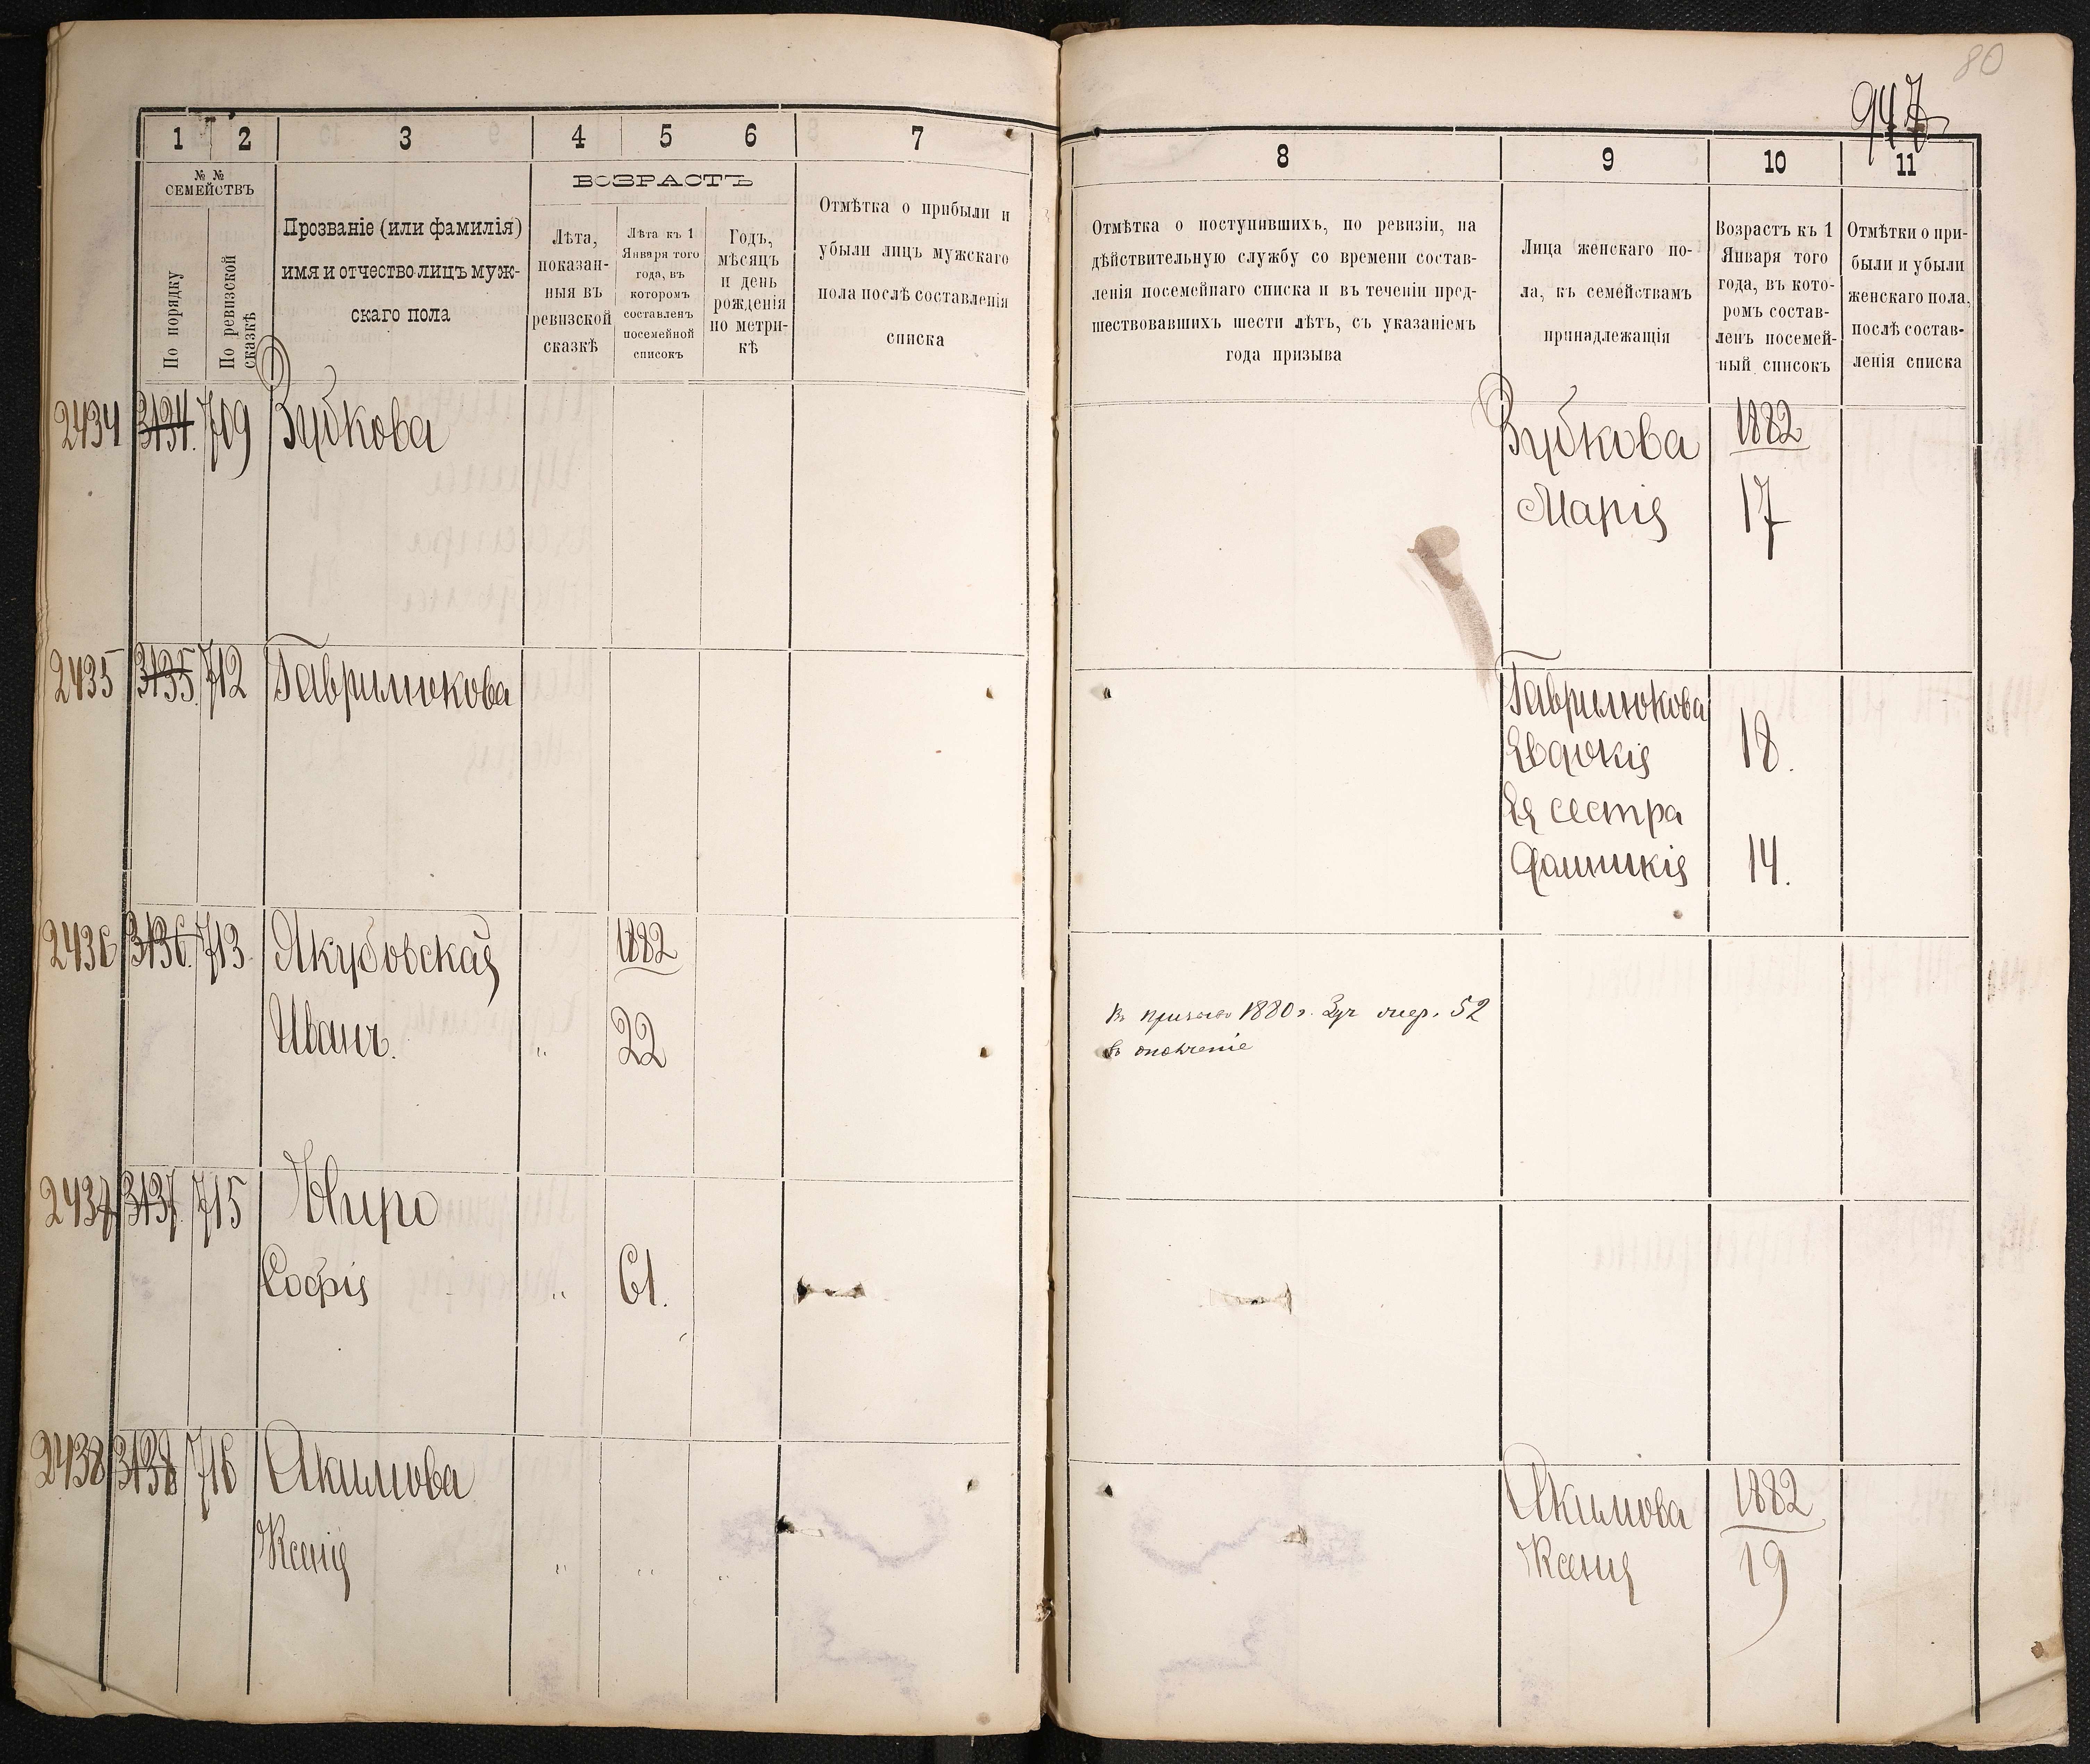 80
947
1 2 3 4 5 6 7
№ №
СЕМЕЙСТВЪ
По порядку
По ревизской
сказкѣ
Прозваніе (или фамилія)
имя и отчество лицъ муж-
скаго пола
ВОЗРАСТЪ
Лѣта,
показан-
ныя въ
ревизской
сказкѣ
Лѣта къ 1
Января того
года, въ
которомъ
составленъ
посемейной
списокъ
Годъ,
мѣсяцъ
и день
рожденія
по метри-
кѣ
Отмѣтка о прибыли и
убыли лицъ мужскаго
пола послѣ составленія
списка
2434 3134. 709 Зубкова
2435 3135. 712 Гаврилюкова
2436 3136. 713. Якубовская 1882
Иванъ. " 22
2437 3137. 715
Софія " 61.
2438 3138 716 Акимова
Ксенія " " "
8 9 10 11
Отмѣтка о поступившихъ, по ревизіи, на
дѣйствительную службу со времени состав-
ленія посемейнаго списка и въ теченіи пред-
шествовавшихъ шести лѣтъ, съ указаніемъ
года призыва
Лица женскаго по-
ла, къ семействамъ
принадлежащія
Возрастъ къ 1
Января того
года, въ кото-
ромъ состав-
ленъ посемей-
ный списокъ
Отмѣтки о при-
были и убыли
женскаго пола,
послѣ состав-
ленія списка
Зубкова 1882
Марія 17
Гаврилюкова
Евдокія 18.
Ея сестра
14.
Въ 1880 г. 52
въ ополченіе
Акимова 1882
Ксенія 19